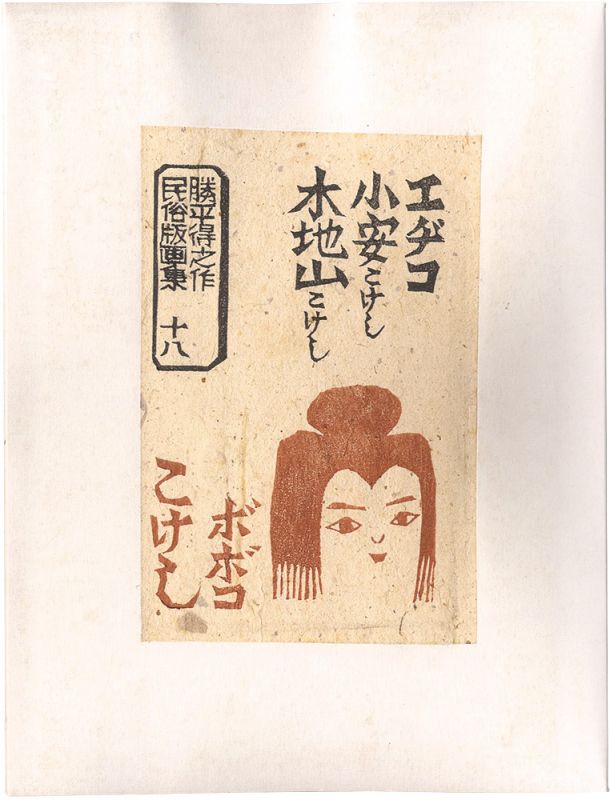 エヂコ
小安こけし
木地山こけし
勝平得之作
民俗版画集 十八
ボボコ
こけし